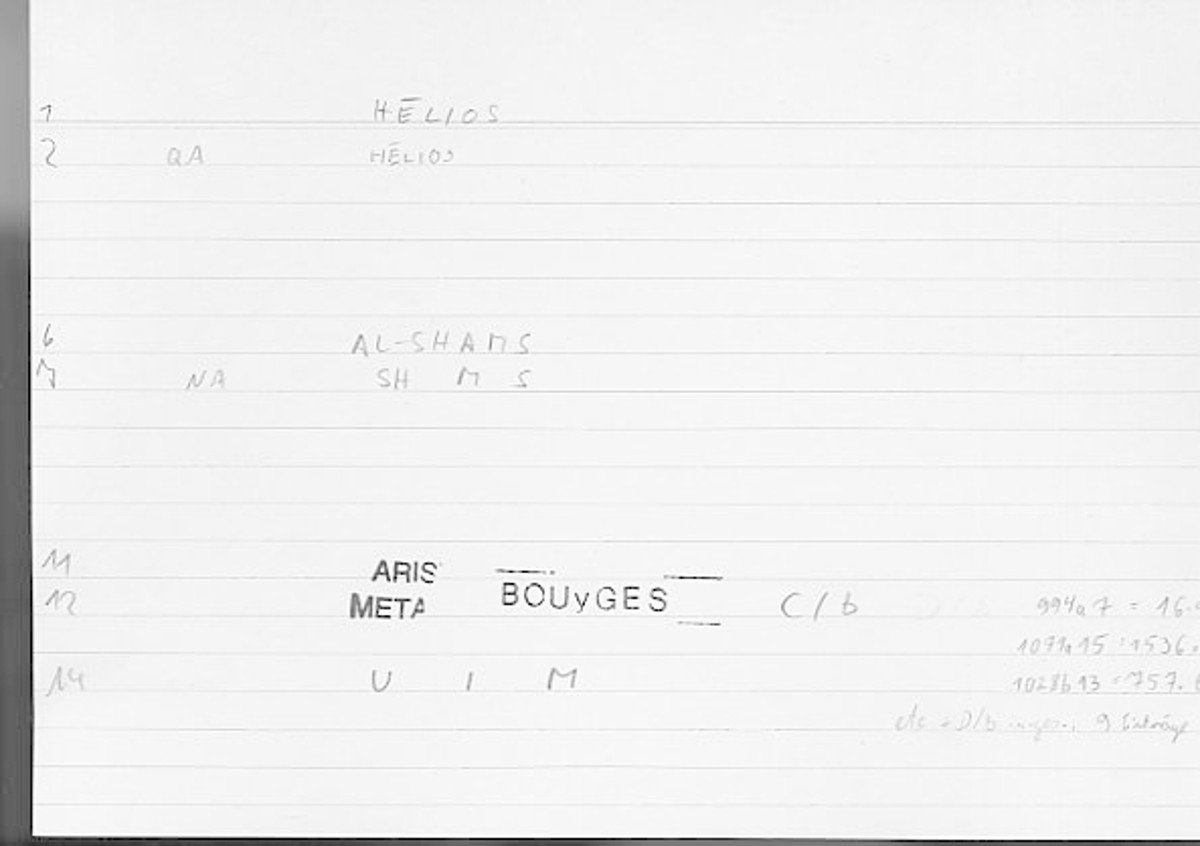 1 HĒLIOS
2 QA HĒLIOS
6 AL-SHAMS
7 NA SH M S
11 ARIS
12 META BOUyGES C/b 994a7 = 16.
1071a15 : 1536.
14 U I M 1028b13 = 757.
etc = D/b 9 Einträge